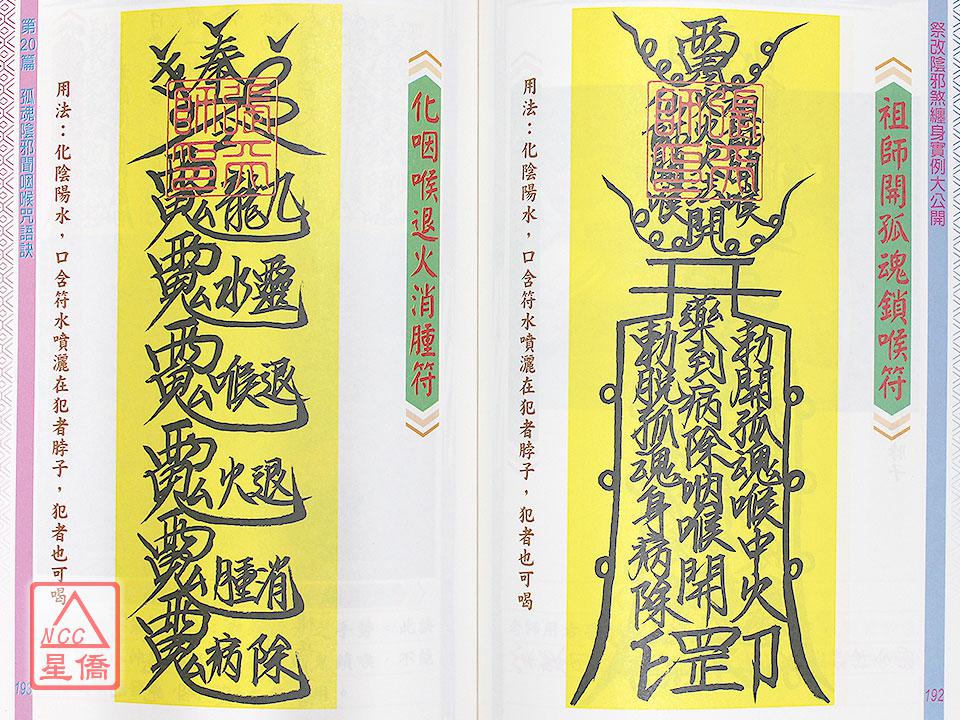 祭改陰邪煞纏身實例大公開
祖師開孤魂鎖喉符
勅開孤魂喉中火
藥到病除咽喉開
勅脫孤魂身病除
罡印
用法：化陰陽水，口含符水噴灑在犯者脖子，犯者也可喝
192
化咽喉退火消腫符
奉
張天師印
九龍
靈水
退喉
退火
消腫
除病
用法：化陰陽水，口含符水噴灑在犯者脖子，犯者也可喝
第20篇 孤魂陰邪鬧咽喉咒語訣
193
NCC
星僑